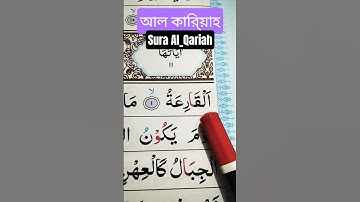 আল কারিয়াহ
Sura Al_Qariah
اٰيَاتُهَا
١١
اَلْقَارِعَةُ ۙ ١ مَا
يَكُوْنُ
الْجِبَالُ كَالْعِهْنِ